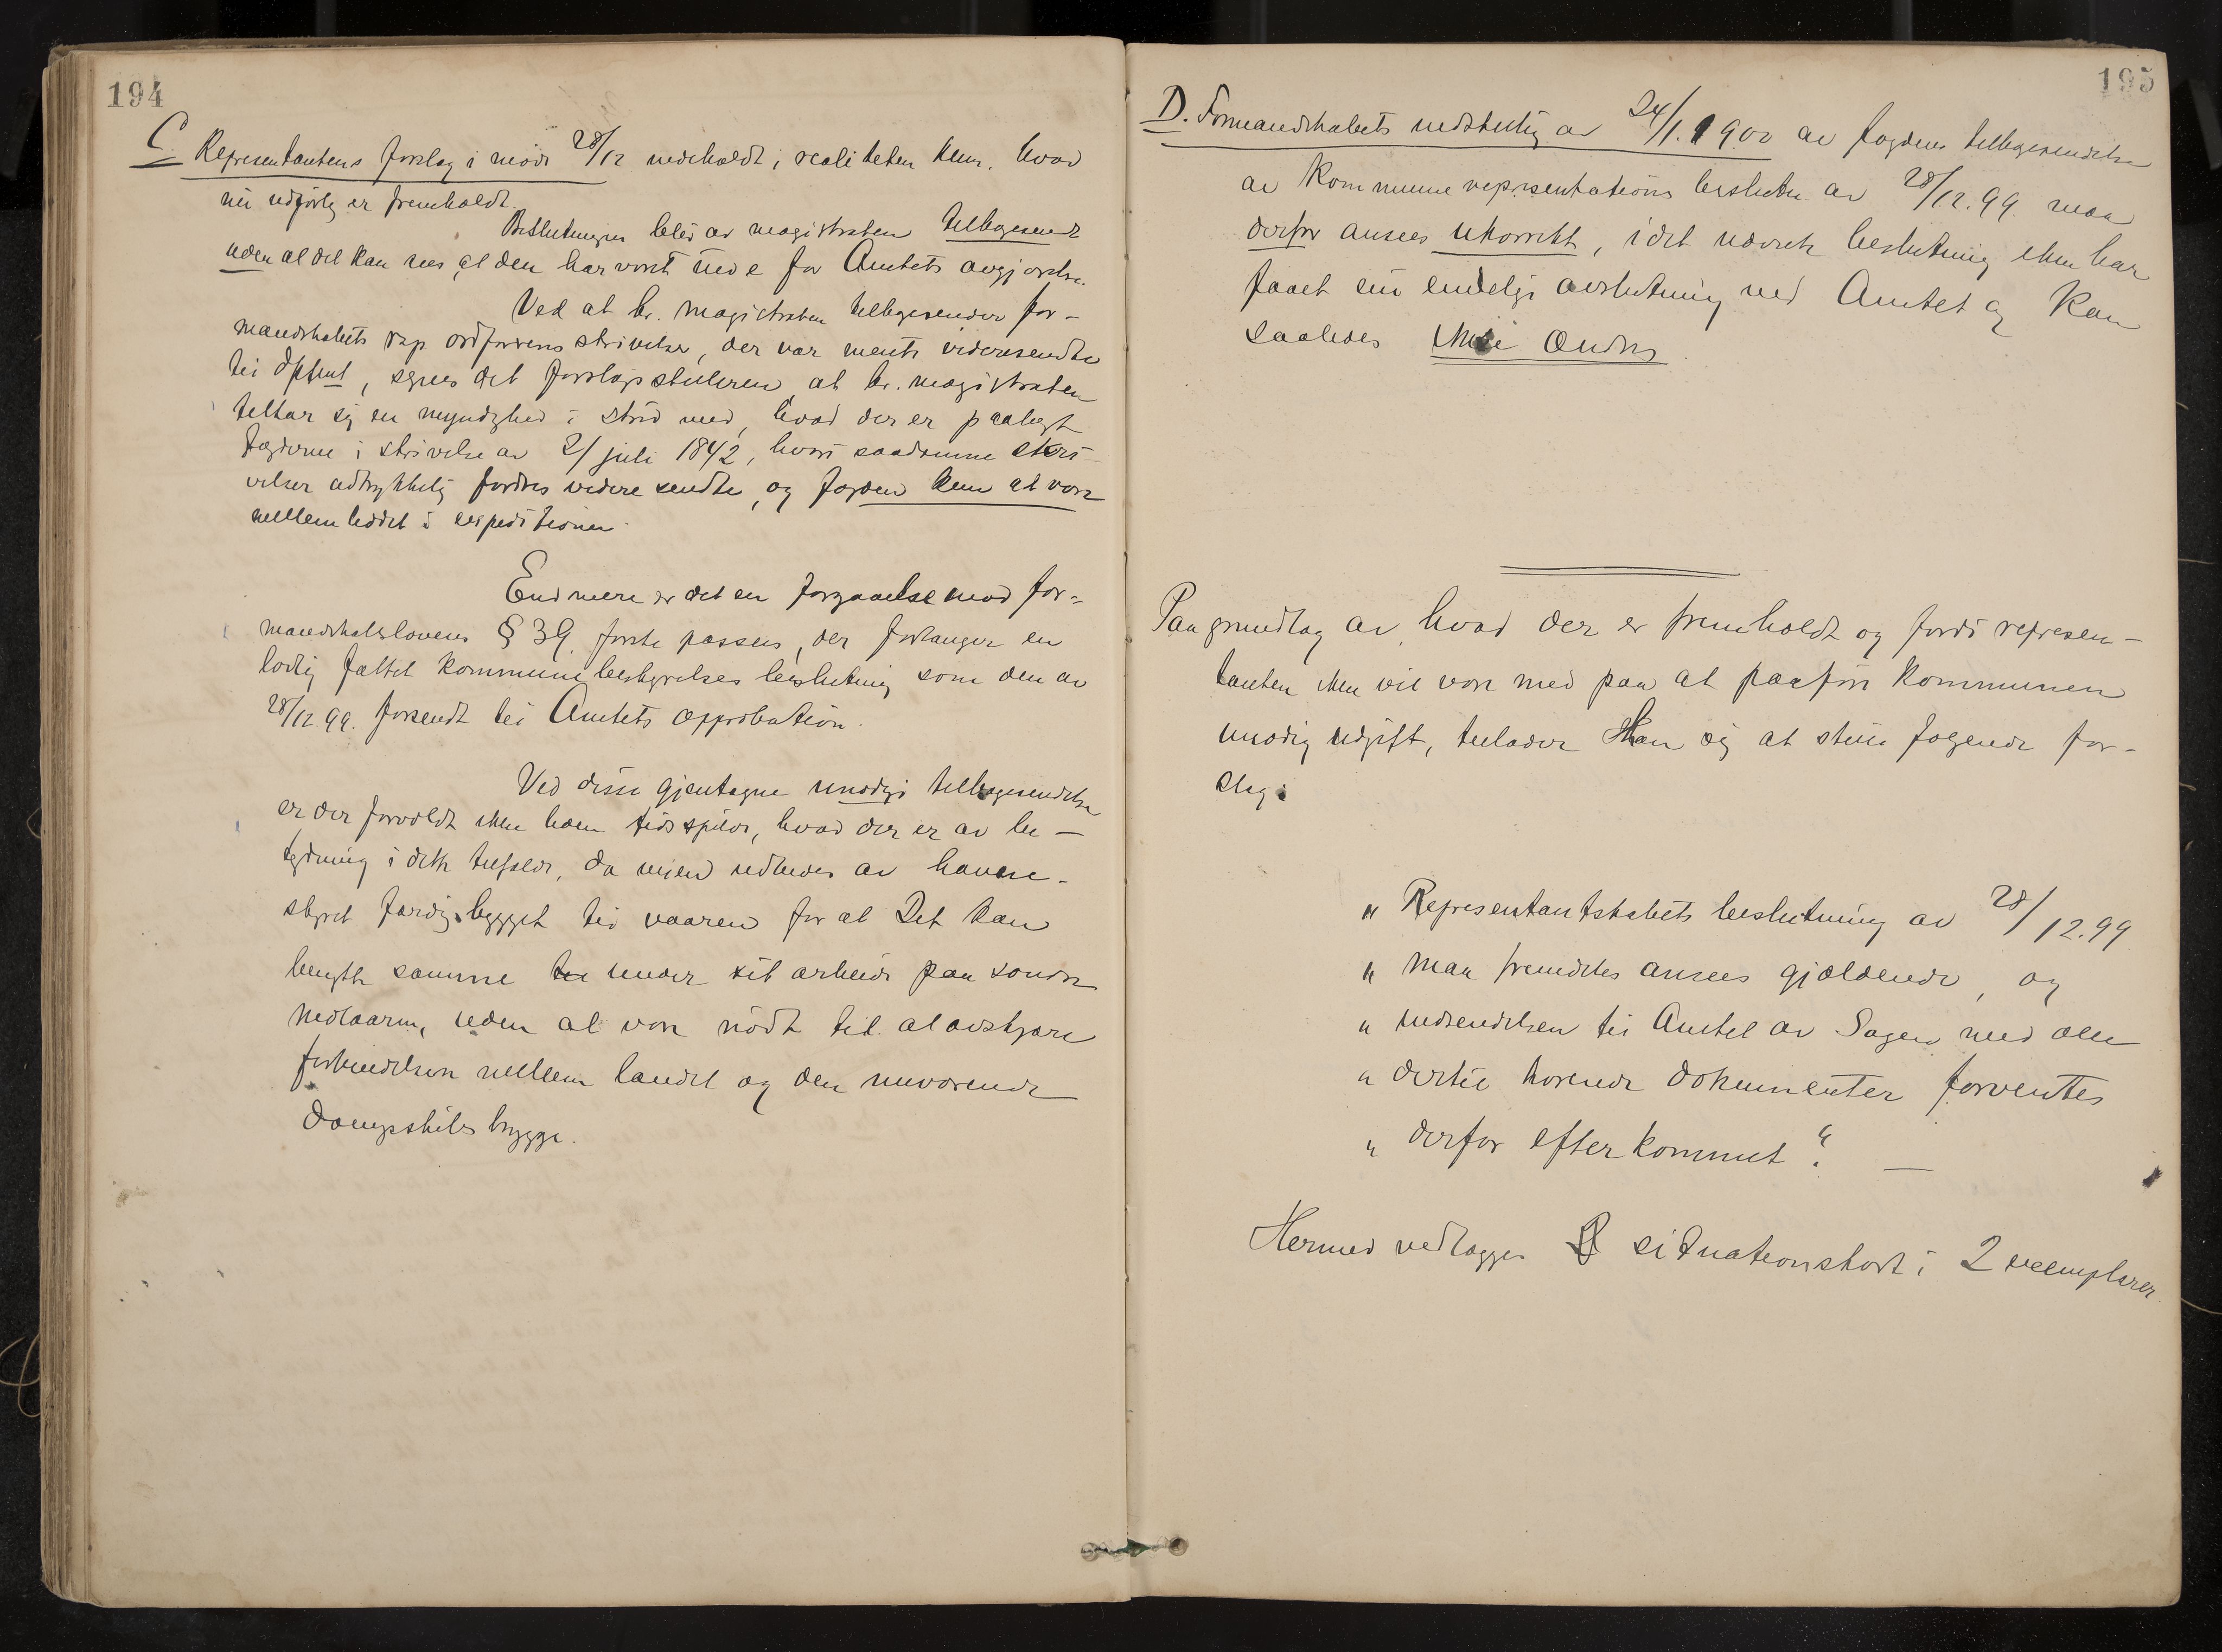 194
C. Representantens forslag i møde 28/12 indeholdt i realiteten kun hvad
nu udførlig er fremholdt.
Beslutningen blev av magistraten tilbagesendt
uden at det kan sees at den har vært inde for Amtets avgjørelse.
Ved at hr. magistraten tilbagesender for-
mandskabets rsp ordførerens skrivelse, der var ment videresendte
til Amtet, synes det forslagsstilleren at hr. magistraten
tiltar sig en myndighed i strid med, hvad der er paalagt
fogderne i skrivelse av 2/ juli 1842, hvori saadanne skri-
velser udtrykkelig fordres videre sendte, og fogden kun at være
mellemleddet i expeditionen.
End mere er det en forgaaelse mod for-
mandskabslovens § 39 første passus, der forlanger en
lovlig fattet kommunebestyrelses beslutning som den av
28/12.99. forsendt til Amtets approbation.
Ved disse gjentagne unødige tilbagesendelser
er der forvoldt ikke liden tidsspilde, hvad der er av be-
tydning i dette tilfælde, da veien udbedes av havne-
styret færdigbygget til vaaren for at Det kan
benytte samme under sit arbeide paa søndre
Medlaaren, uden at være nødt til at avskjære
forbindelsen mellem landet og den nuværende
Dampskibsbrygge.
195
D. Formandskabets indstilling av 24/1.1900 av fogdens tilbagesendelse
av Kommunerepresentations beslutn. av 28/12.99. maa
derfor ansees ukorrekt, idet nævnte beslutning ikke har
faaet sin endelige avslutning ved Amtet og kan
saaledes ikke ændres.
Paa grundlag av hvad der er fremholdt og fordi represen-
tanten ikke vil være med paa at paaføre Kommunen
unødig udgift, tillader Han sig at stille følgende for-
slag:
„ Representantskabets beslutning av 28/12.99
„ maa fremdeles ansees gjældende, og
„ indsendelsen til Amtet av Sagen med alle
„ dertil hørende dokumenter forventes
„ derfor efterkommet“. —
Hermed vedlægges situationskort i 2 exemplarer.